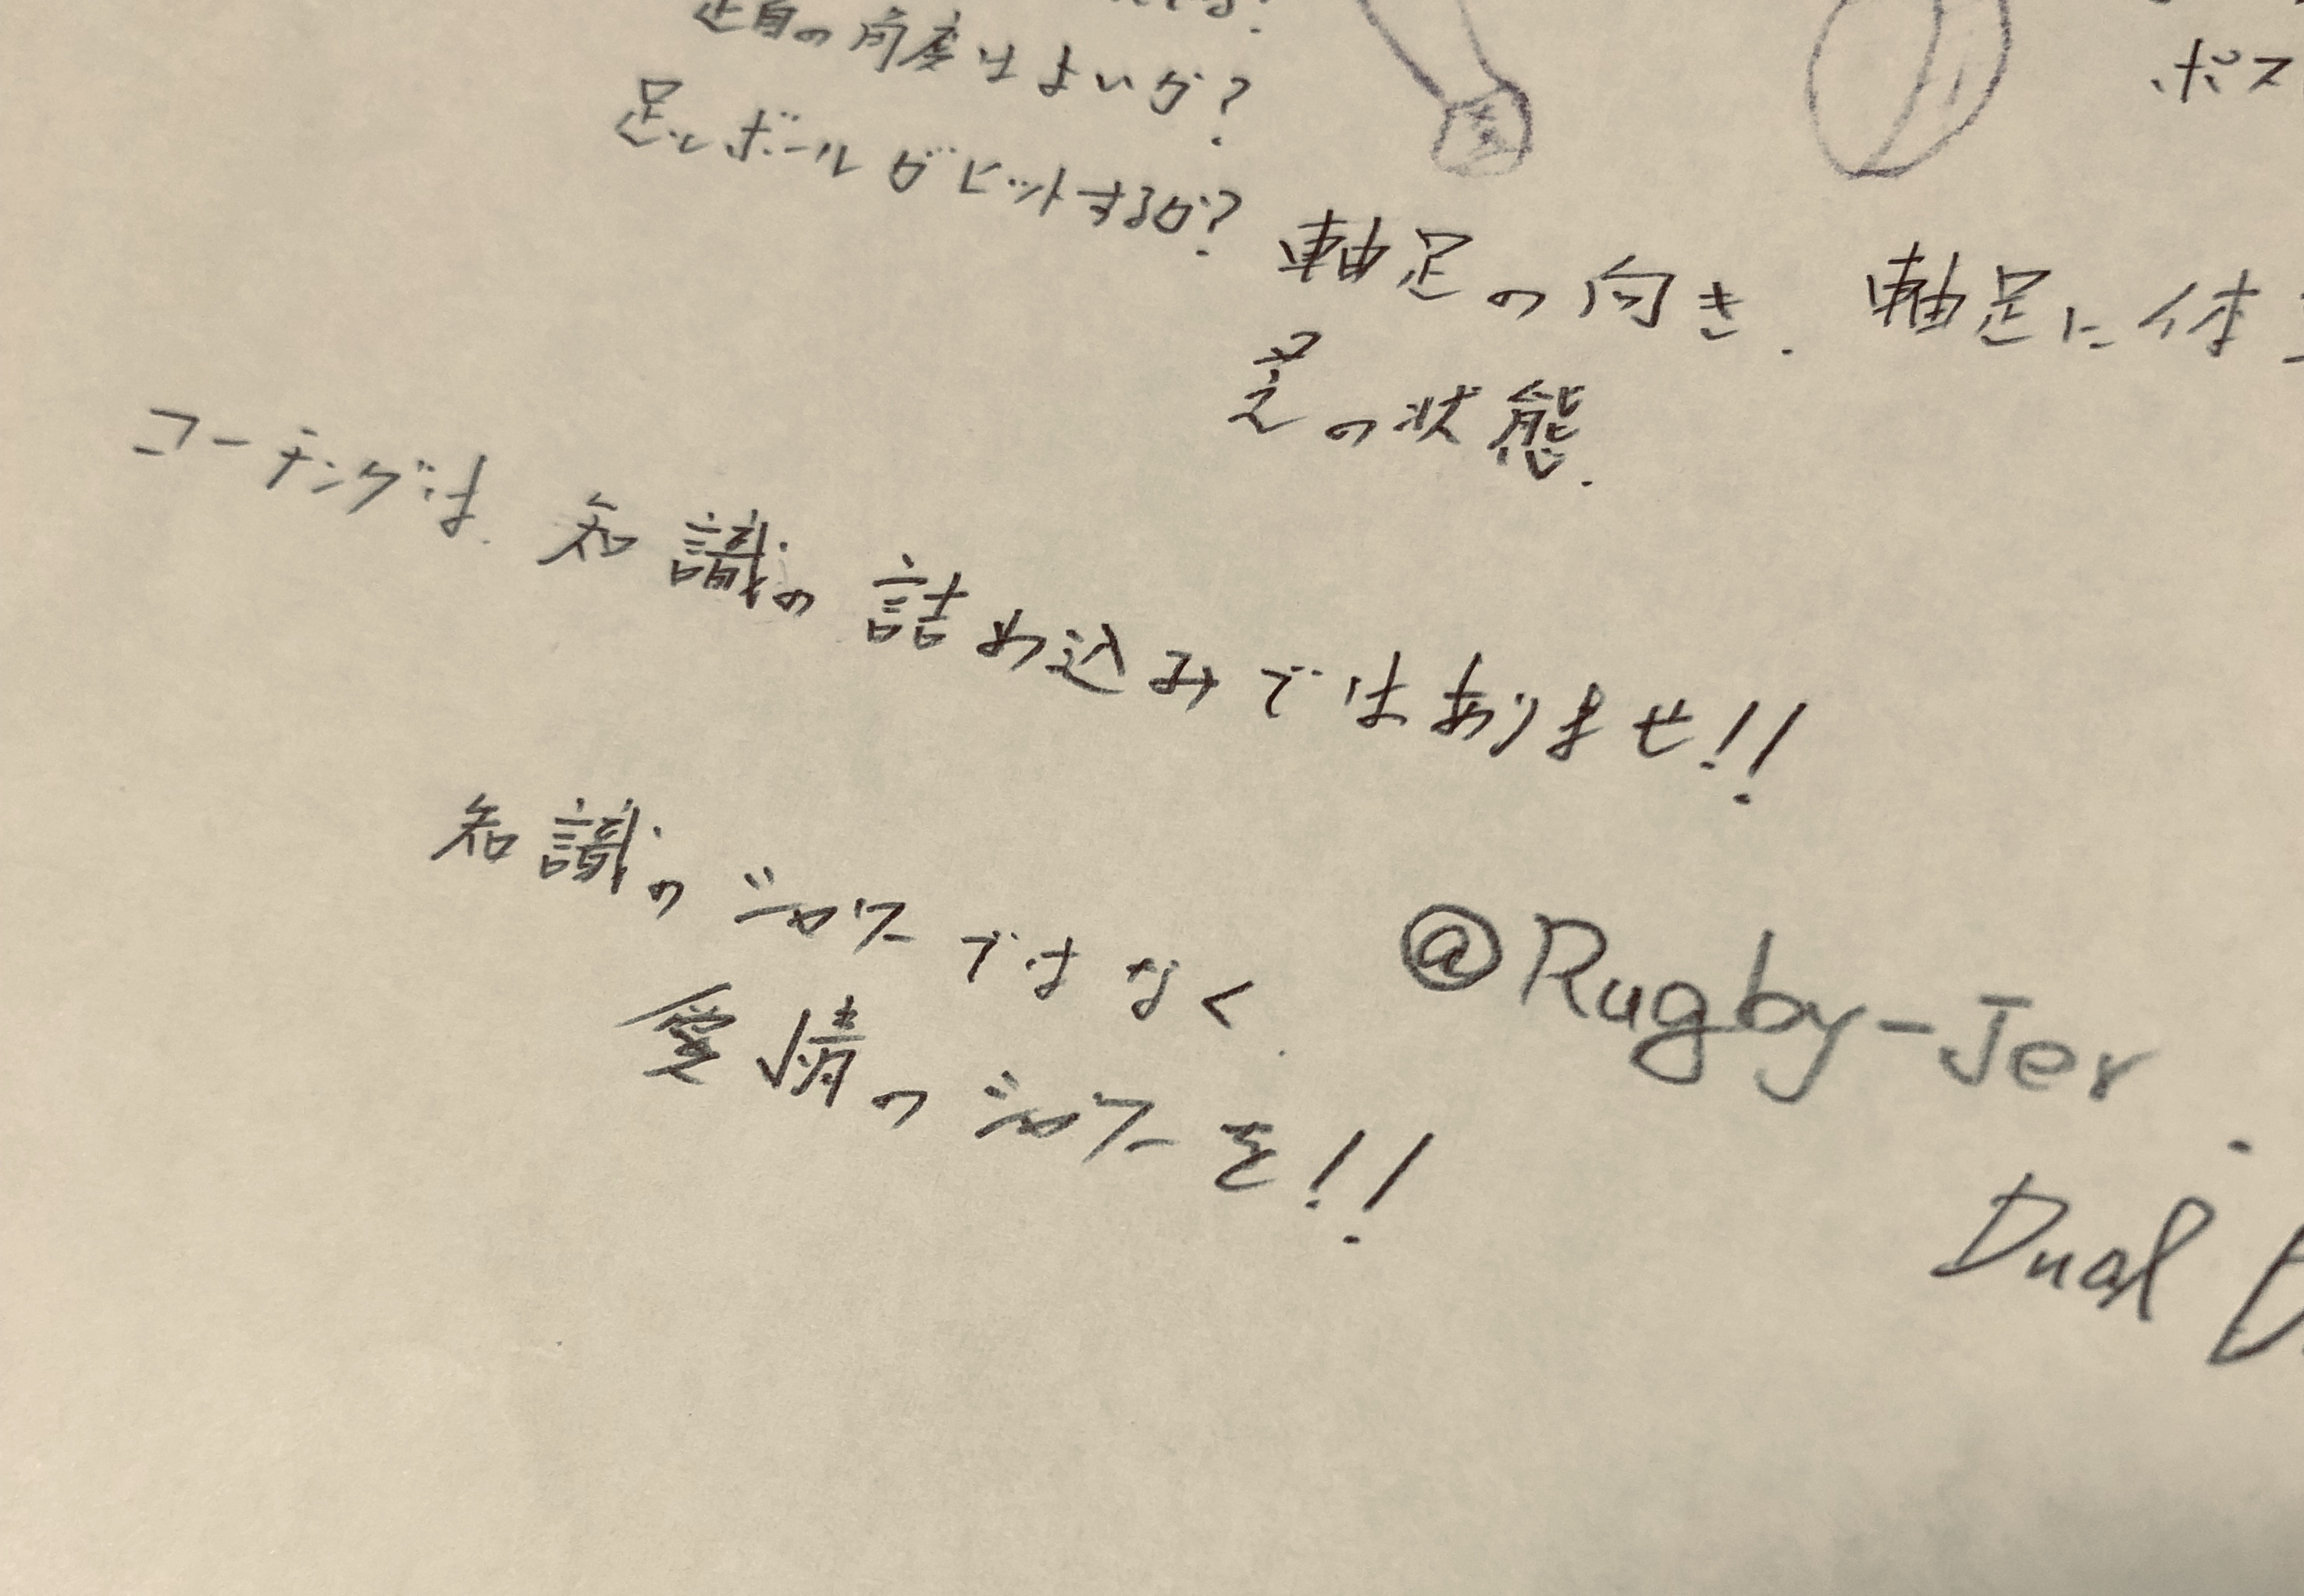 の角度はよいか?
足とボールがヒットするか?
ポス
軸足の向き. 軸足に体
の状態.
コーチングは、知識の詰め込みではありませ!!
知識のシャワーではなく、
愛情のシャワーを!!
@Rugby-Jer
Dual